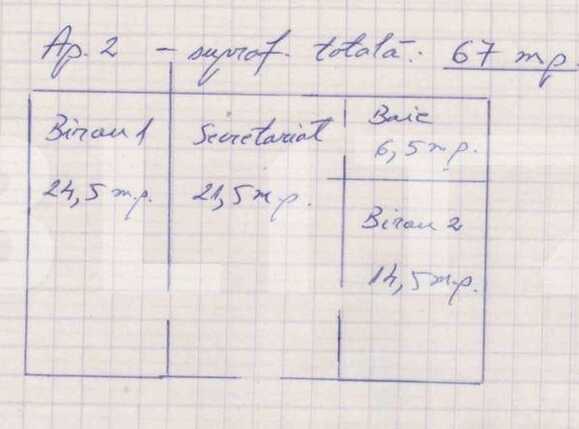 Ap. 2 - supraf. totală: 67 mp.
Birou 1
24,5 mp.
Secretariat
21,5 mp.
Baie
6,5 mp.
Birou 2
14,5 mp.